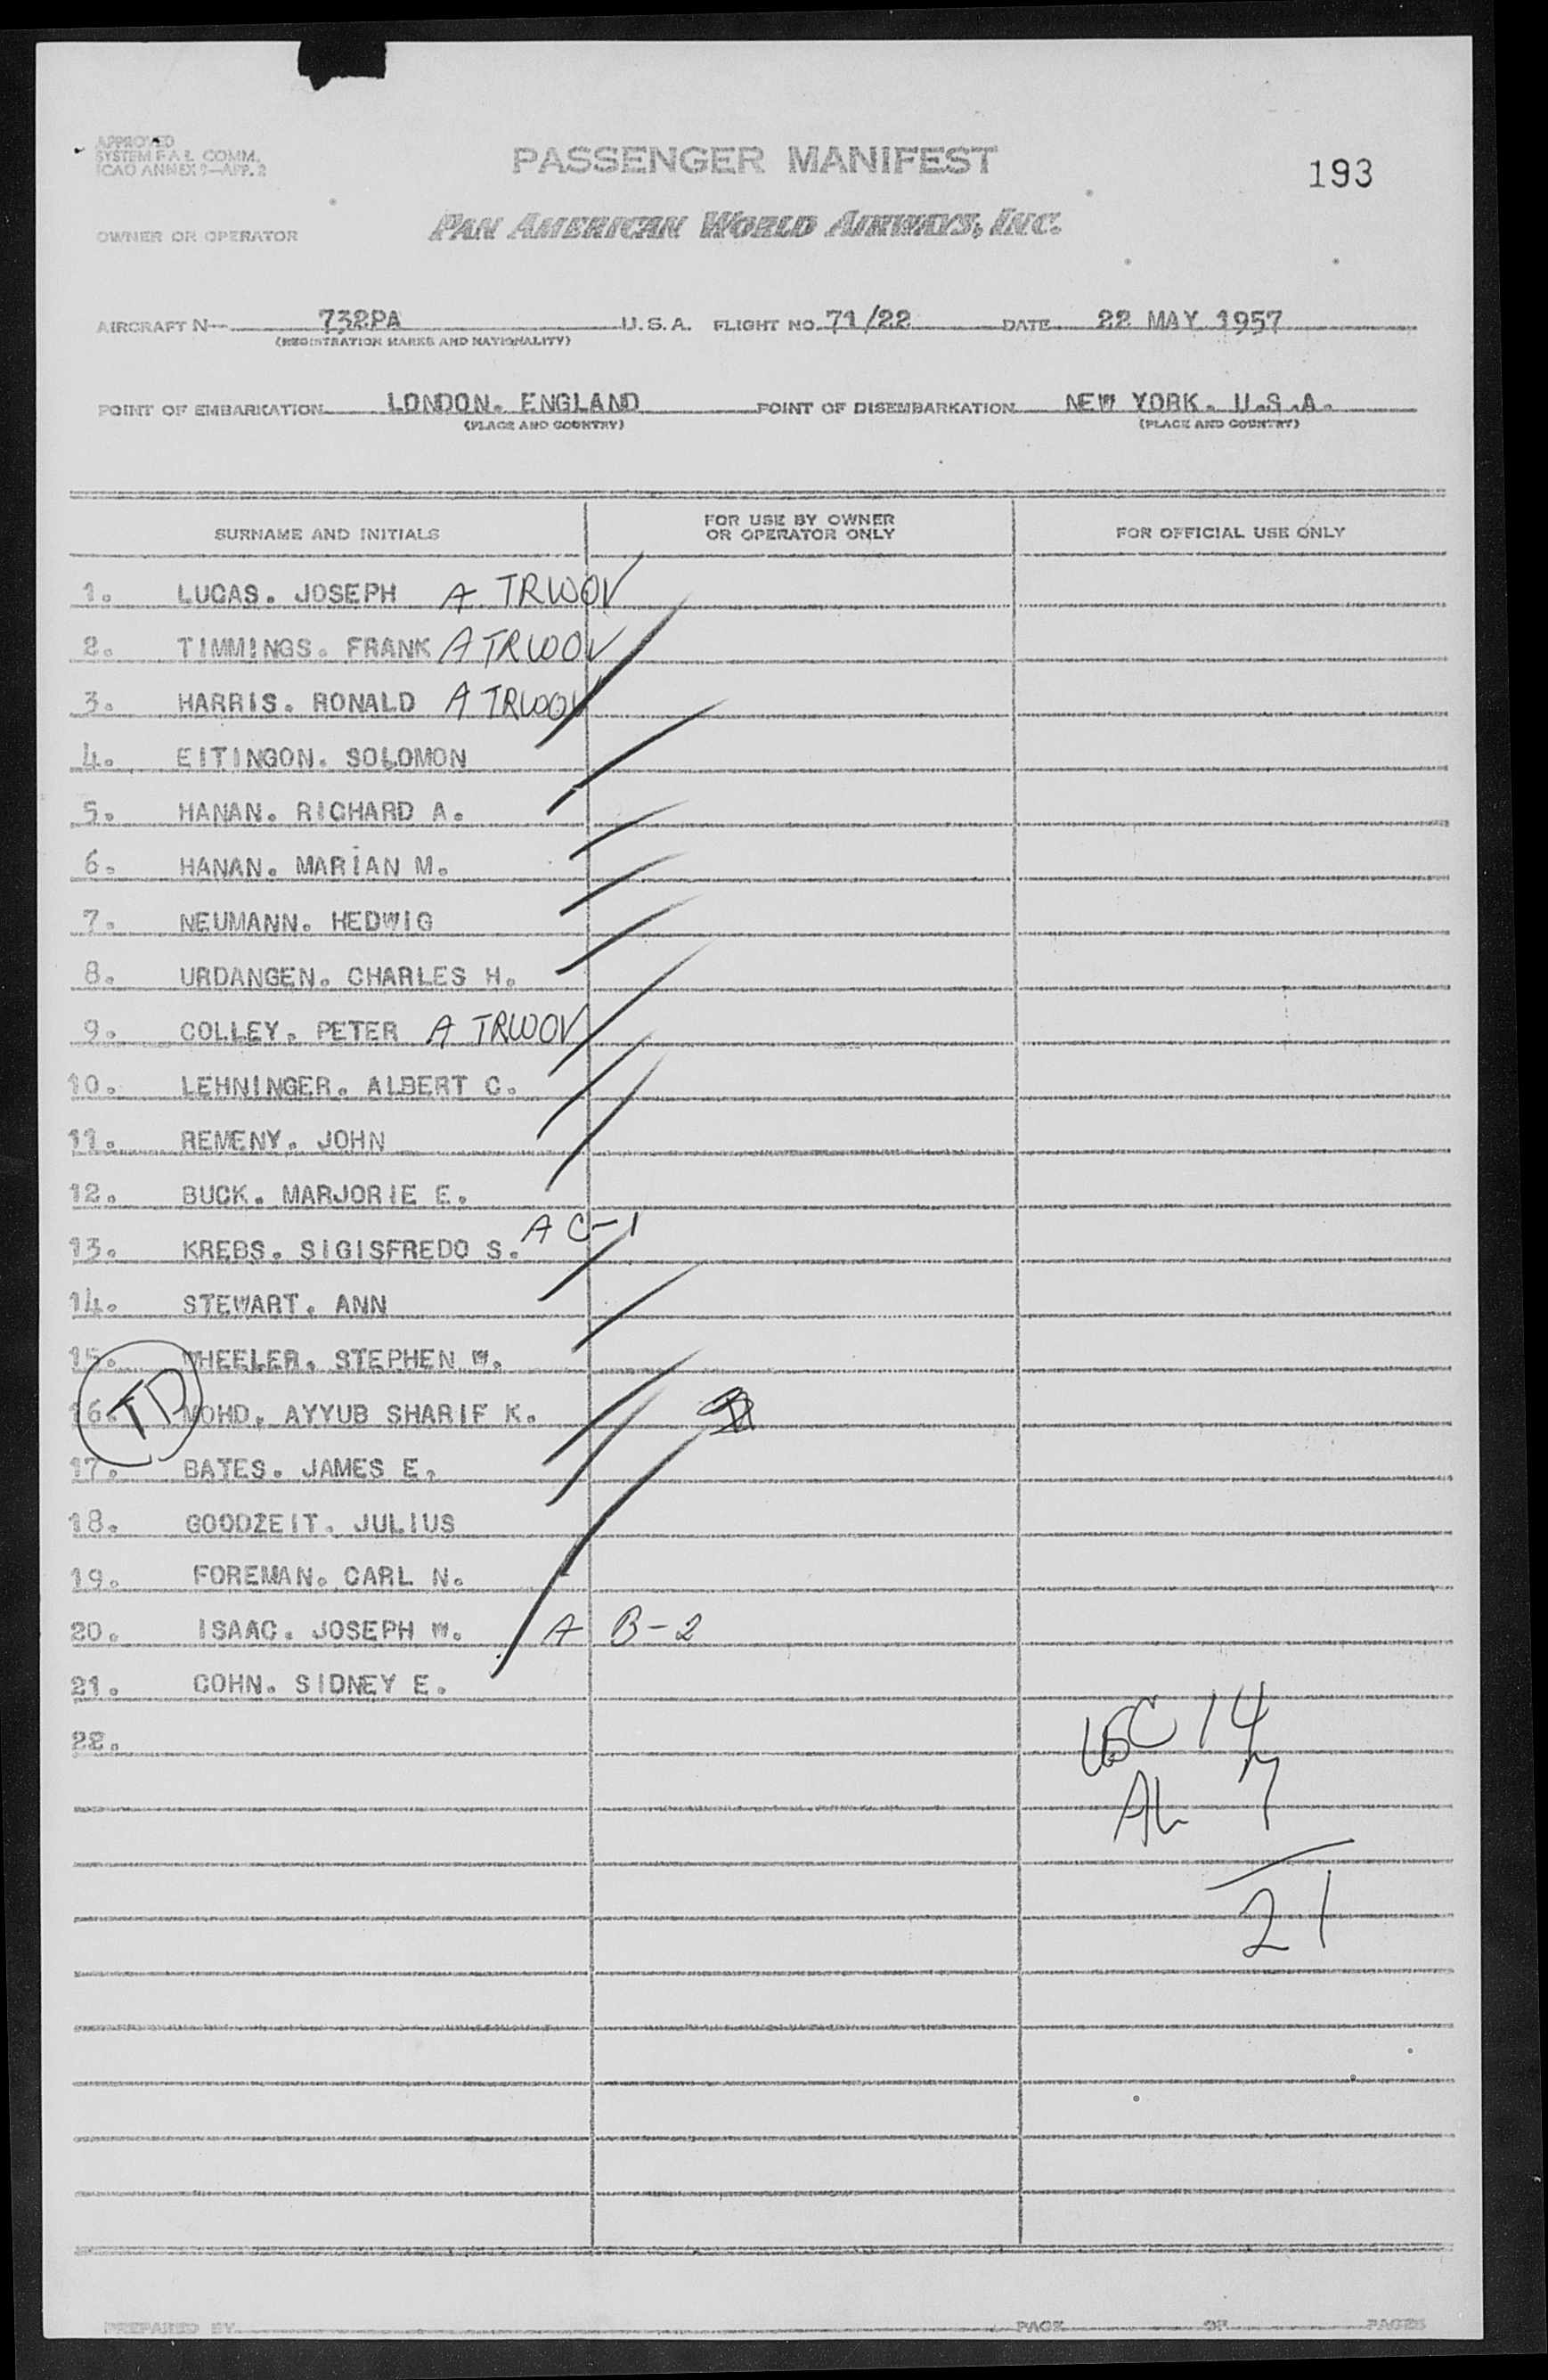 APPROVED
SYSTEM F.A.L. COMM.
ICAO ANNEX 9—APP. 2
PASSENGER MANIFEST
193
OWNER OR OPERATOR
PAN AMERICAN WORLD AIRWAYS, INC.
AIRCRAFT N— 732PA U.S.A. FLIGHT NO. 71/22 DATE 22 MAY 1957
(REGISTRATION MARKS AND NATIONALITY)
POINT OF EMBARKATION LONDON. ENGLAND POINT OF DISEMBARKATION NEW YORK. U.S.A.
(PLACE AND COUNTRY) (PLACE AND COUNTRY)
SURNAME AND INITIALS FOR USE BY OWNER OR OPERATOR ONLY FOR OFFICIAL USE ONLY
1. LUCAS. JOSEPH A TRWOV
2. TIMMINGS. FRANK A TRWOV
3. HARRIS. RONALD A TRWOV
4. EITINGON. SOLOMON
5. HANAN. RICHARD A.
6. HANAN. MARIAN M.
7. NEUMANN. HEDWIG
8. URDANGEN. CHARLES H.
9. COLLEY. PETER A TRWOV
10. LEHNINGER. ALBERT C.
11. REMENY. JOHN
12. BUCK. MARJORIE E.
13. KREBS. SIGISFREDO S. A C-1
14. STEWART. ANN
15. WHEELER. STEPHEN W.
TD
16. MOHD. AYYUB SHARIF K.
17. BATES. JAMES E.
18. GOODZEIT. JULIUS
19. FOREMAN. CARL N.
20. ISAAC. JOSEPH W. A B-2
21. COHN. SIDNEY E.
22.
USC 14
AL 7
21
PREPARED BY PAGE OF PAGES